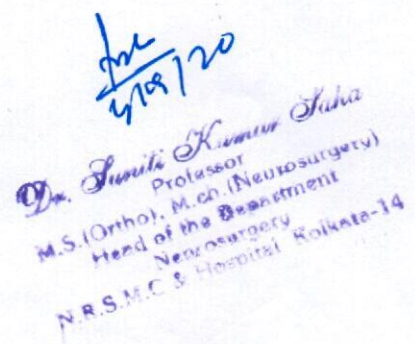 /09/20
Dr. Suniti Kumar Saha
Professor
M.S.(Ortho), M.ch.(Neurosurgery)
Head of the Department
Neurosurgery
N.R.S.M.C & Hospital Kolkata-14